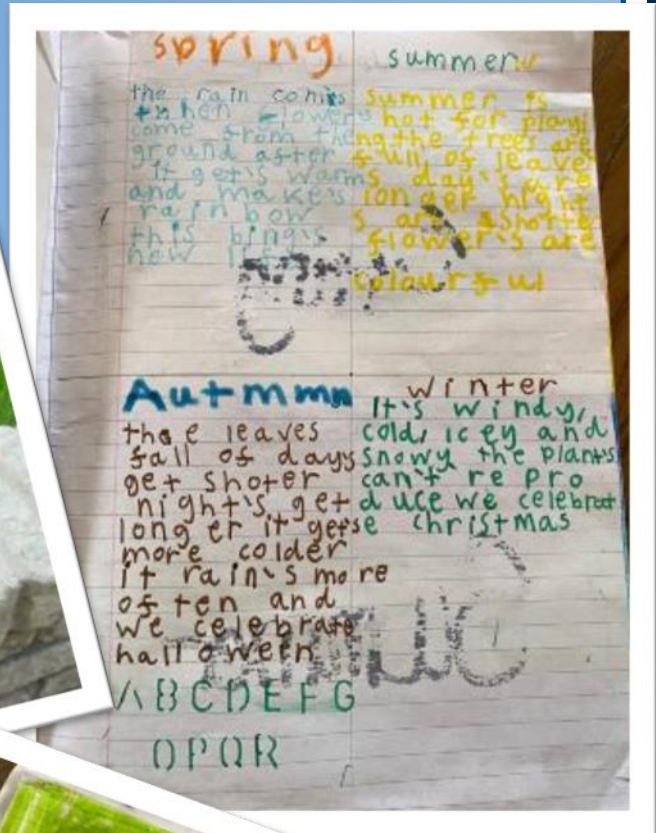 spring
the rain comes
then flowers
come from the
ground after
it get's warm
and make's
rainbow
this bing's
new
summer
summer is
hot for playi
ng the trees are
full of leave
s day's are
longer night
s are shotter
flower's are
colourful
Autmmn
the leaves
fall of days
get shoter
night's get
longer it gets
more colder
it rain's more
often and
we celebrate
halloween
winter
It's windy,
cold, icey and
snowy the plants
can't re pro
duce we celebrat
e christmas
ABCDEFG
OPQR